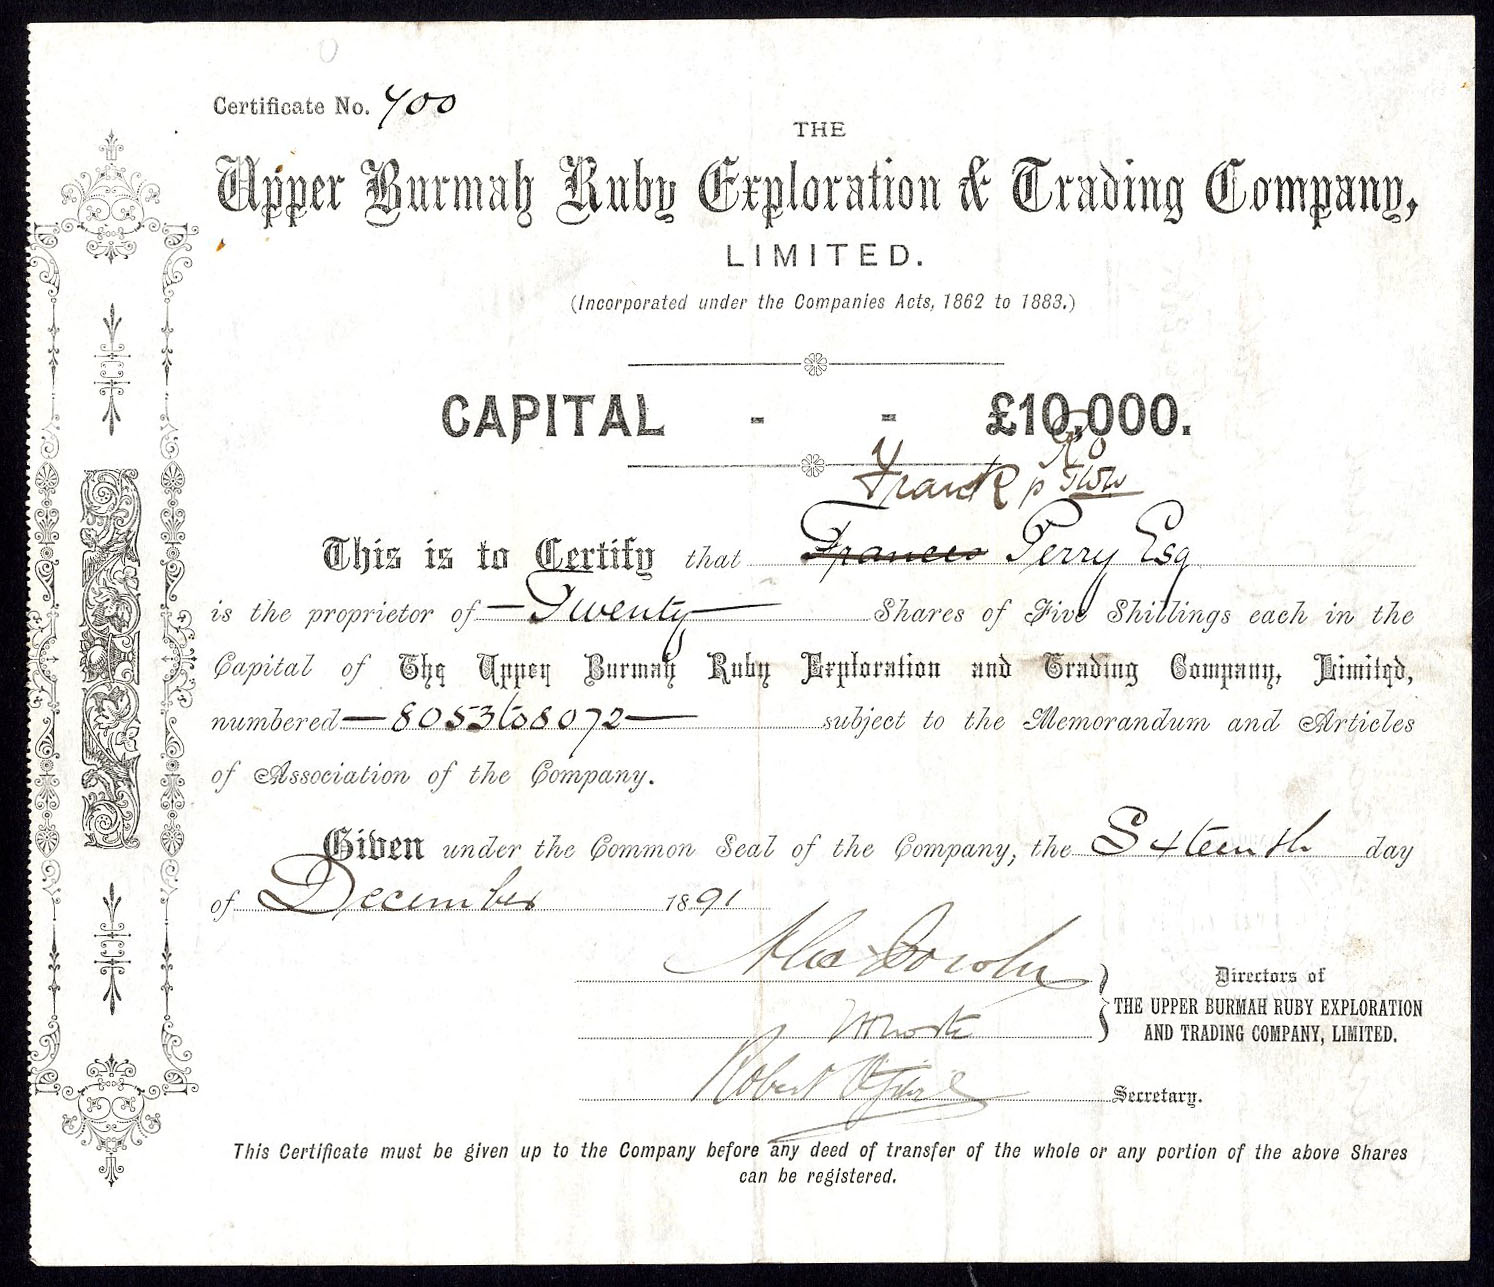 Certificate No. 400
THE
Upper Burmah Ruby Exploration & Trading Company,
LIMITED.
(Incorporated under the Companies Acts, 1862 to 1883.)
CAPITAL - - £10,000.
Frank
This is to Certify that Frances Perry Esq
is the proprietor of — Twenty — Shares of Five Shillings each in the
Capital of The Upper Burmah Ruby Exploration and Trading Company, Limited,
numbered — 8053 to 8072 — subject to the Memorandum and Articles
of Association of the Company.
Given under the Common Seal of the Company, the Sixteenth day
of December 1891
Directors of
THE UPPER BURMAH RUBY EXPLORATION
AND TRADING COMPANY, LIMITED.
Robert Secretary.
This Certificate must be given up to the Company before any deed of transfer of the whole or any portion of the above Shares
can be registered.